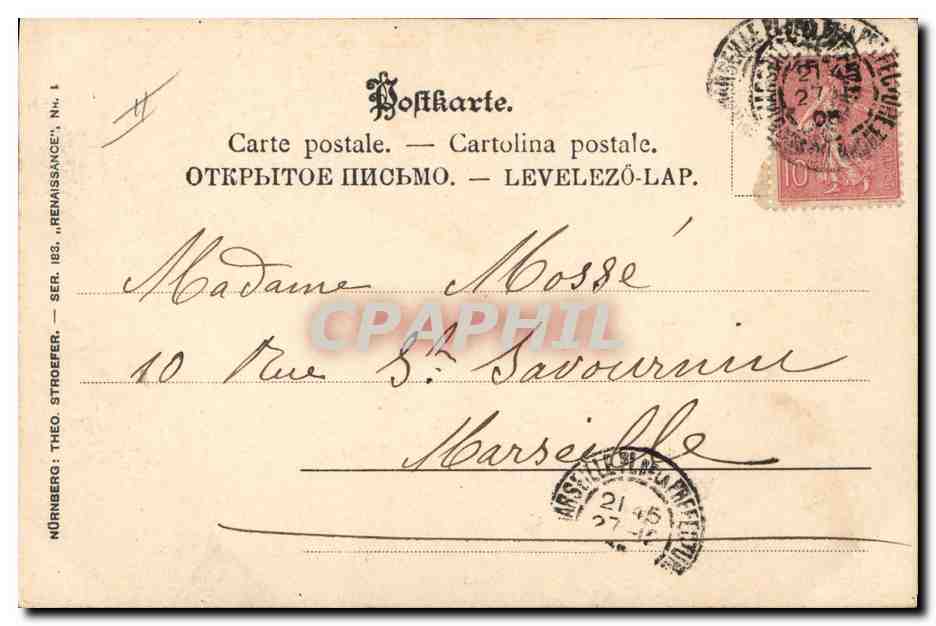 Postkarte.
Carte postale. — Cartolina postale.
ОТКРЫТОЕ ПИСЬМО. — LEVELEZŐ-LAP.
10
Madame Mossé
10 Rue St. Savournin
Marseille
CPAPHIL
MARSEILLE PL. DE LA PREFECTURE
21 45
27
05
MARSEILLE PL. DE LA PREFECTURE
21 45
27
NÜRNBERG: THEO. STROEFER. — SER. 183. „RENAISSANCE”, NR. 1